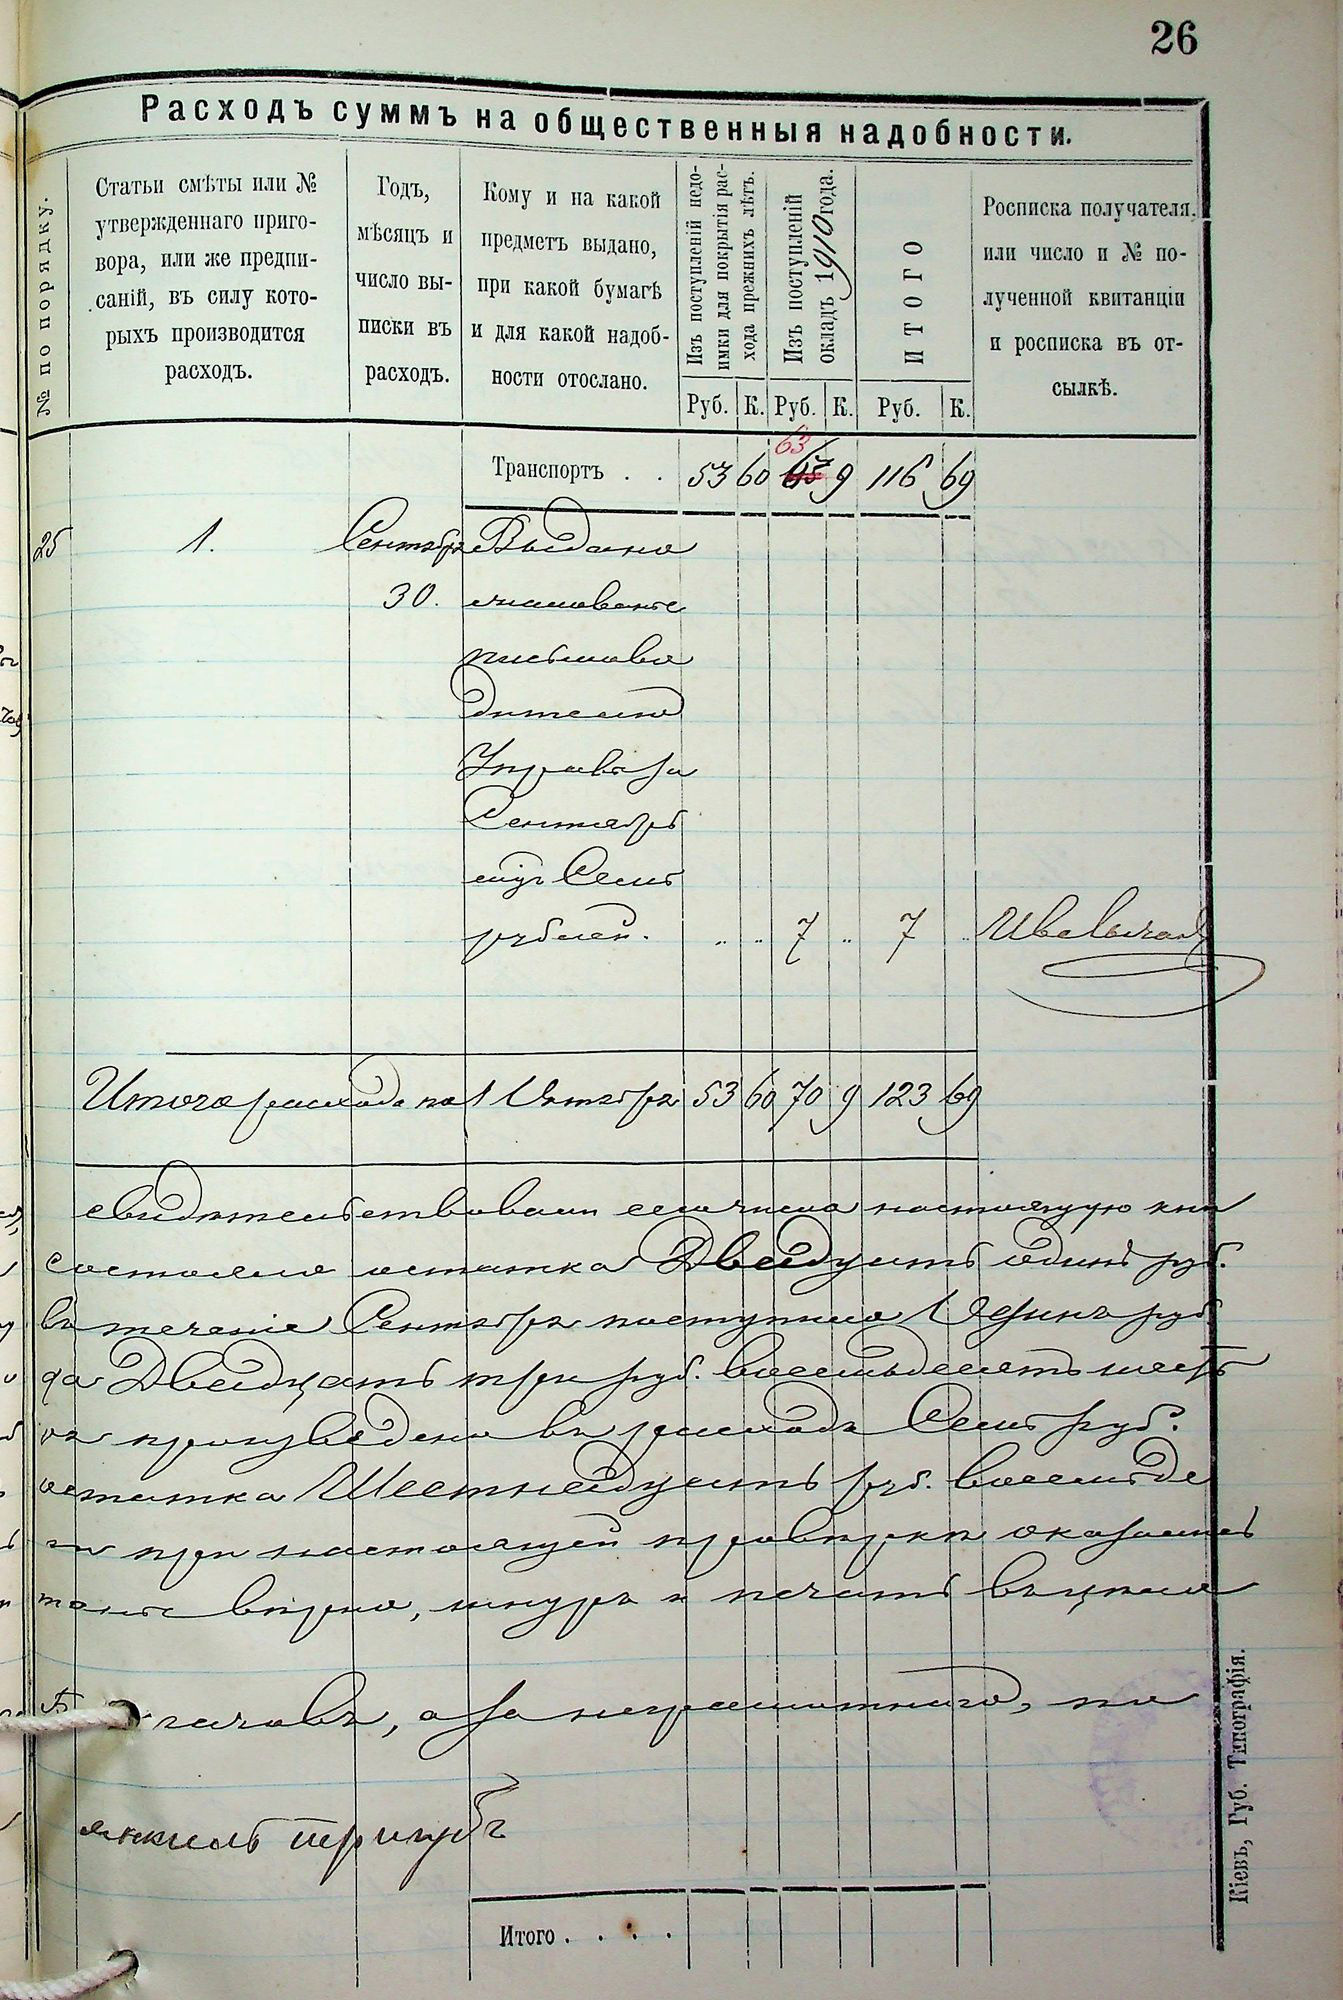 26
Расходъ суммъ на общественныя надобности.
№ по порядку.
Статьи смѣты или №
утвержденнаго приго-
вора, или же предпи-
саній, въ силу кото-
рыхъ производится
расходъ.
Годъ,
мѣсяцъ и
число вы-
писки въ
расходъ.
Кому и на какой
предметъ выдано,
при какой бумагѣ
и для какой надоб-
ности отослано.
Изъ поступленій недо-
имки для покрытія рас-
хода прежнихъ лѣтъ.
Изъ поступленій
окладъ 1910 года.
ИТОГО
Росписка получателя,
или число и № по-
лученной квитанціи
и росписка въ от-
сылкѣ.
Руб. К. Руб. К. Руб. К.
63
Транспортъ . . 53 60 9 116 69
25 1. Сентября Выдано
30. жалованье
письмово
дителю
Управы за
Сентябрь
мѣц Семь
рублей. 7 7
Итого расхода по 1 Октября 53 60 70 9 123 69
свидѣтельствовали сего числа настоящую кни
состояло остатка Двадцать одинъ руб.
въ теченіе Сентября поступило Одинъ руб
да Двадцать три руб. восемьдесятъ шесть
произведено въ расходъ Семь руб.
остатка Шестнадцать руб. восемьде
при настоящей провѣркѣ оказались
вѣрно, шнуръ и печать въ цѣло
а за неграмотнаго, по
Итого . . . .
Кіевъ, Губ. Типографія.